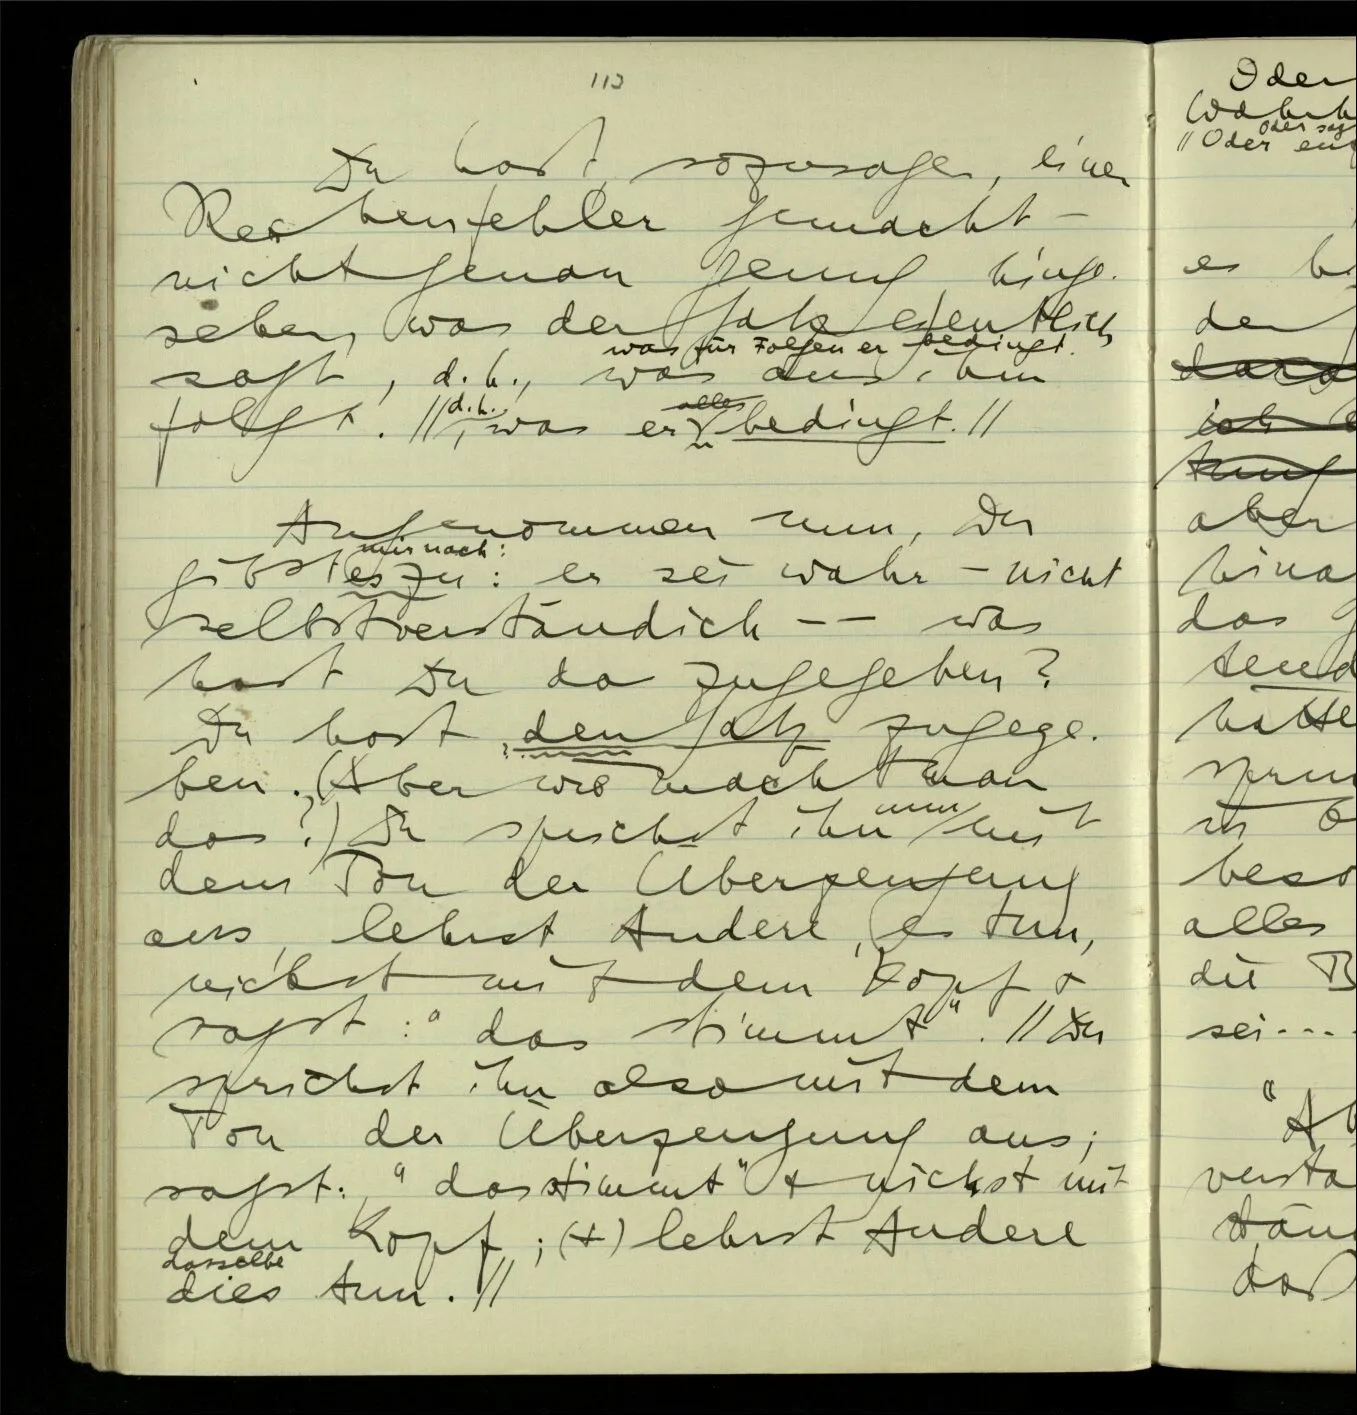 113
Du hast, sozusagen, einen
Rechenfehler gemacht –
nicht genau genug hinge-
sehen, was der Satz eigentlich
was für Folgen er bedingt.
sagt, d.h., was aus ihm
folgt. // d.h., was er alles bedingt. //
Angenommen nun, Du
mir nach:
gibst es zu: er sei wahr – nicht
selbstverständich –– was
hast Du da zugegeben?
Du hast den Satz zugege-
ben. (Aber wie macht man
das?) Du sprichst ihn nun mit
dem Ton der Überzeugung
aus, lehrst Andere, es tun,
nickst mit dem Kopf &
sagst: "das stimmt". // Du
sprichst ihn also mit dem
Ton der Überzeugung aus;
sagst: "das stimmt" & nickst mit
dem Kopf; (&) lehrst Andere
dasselbe
dies tun. //
Oder
Oder
es
der
aber
hina
das
tend
hatte
in
beso
alles
die B
sei...
"Ab
versta
daß